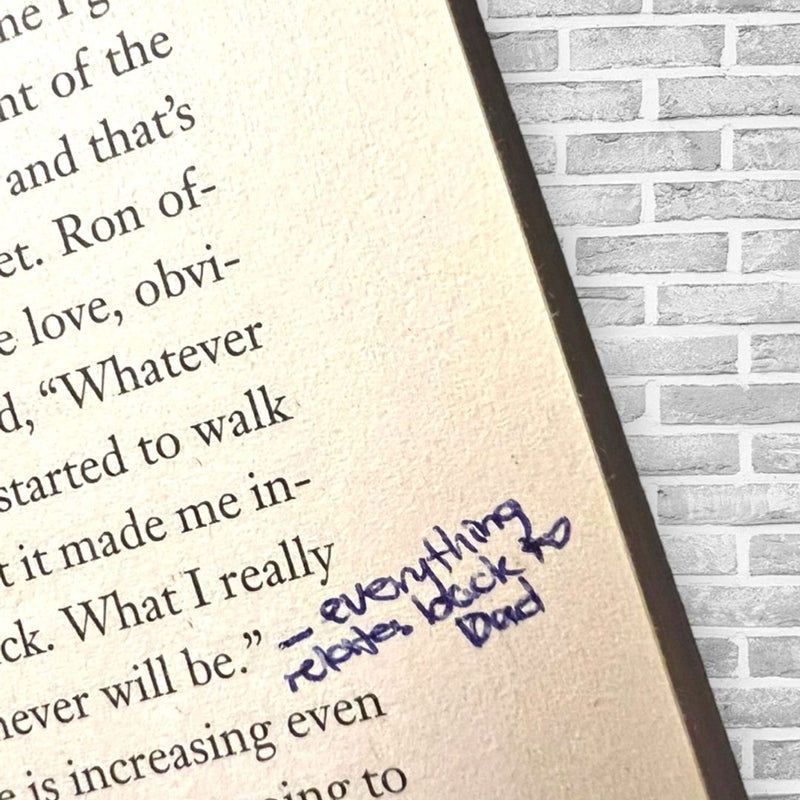 ne I g
nt of the
and that's
et. Ron of-
e love, obvi-
d, "Whatever
started to walk
t it made me in-
ck. What I really
never will be." – everything
relates back to
Dad
e is increasing even
ing to